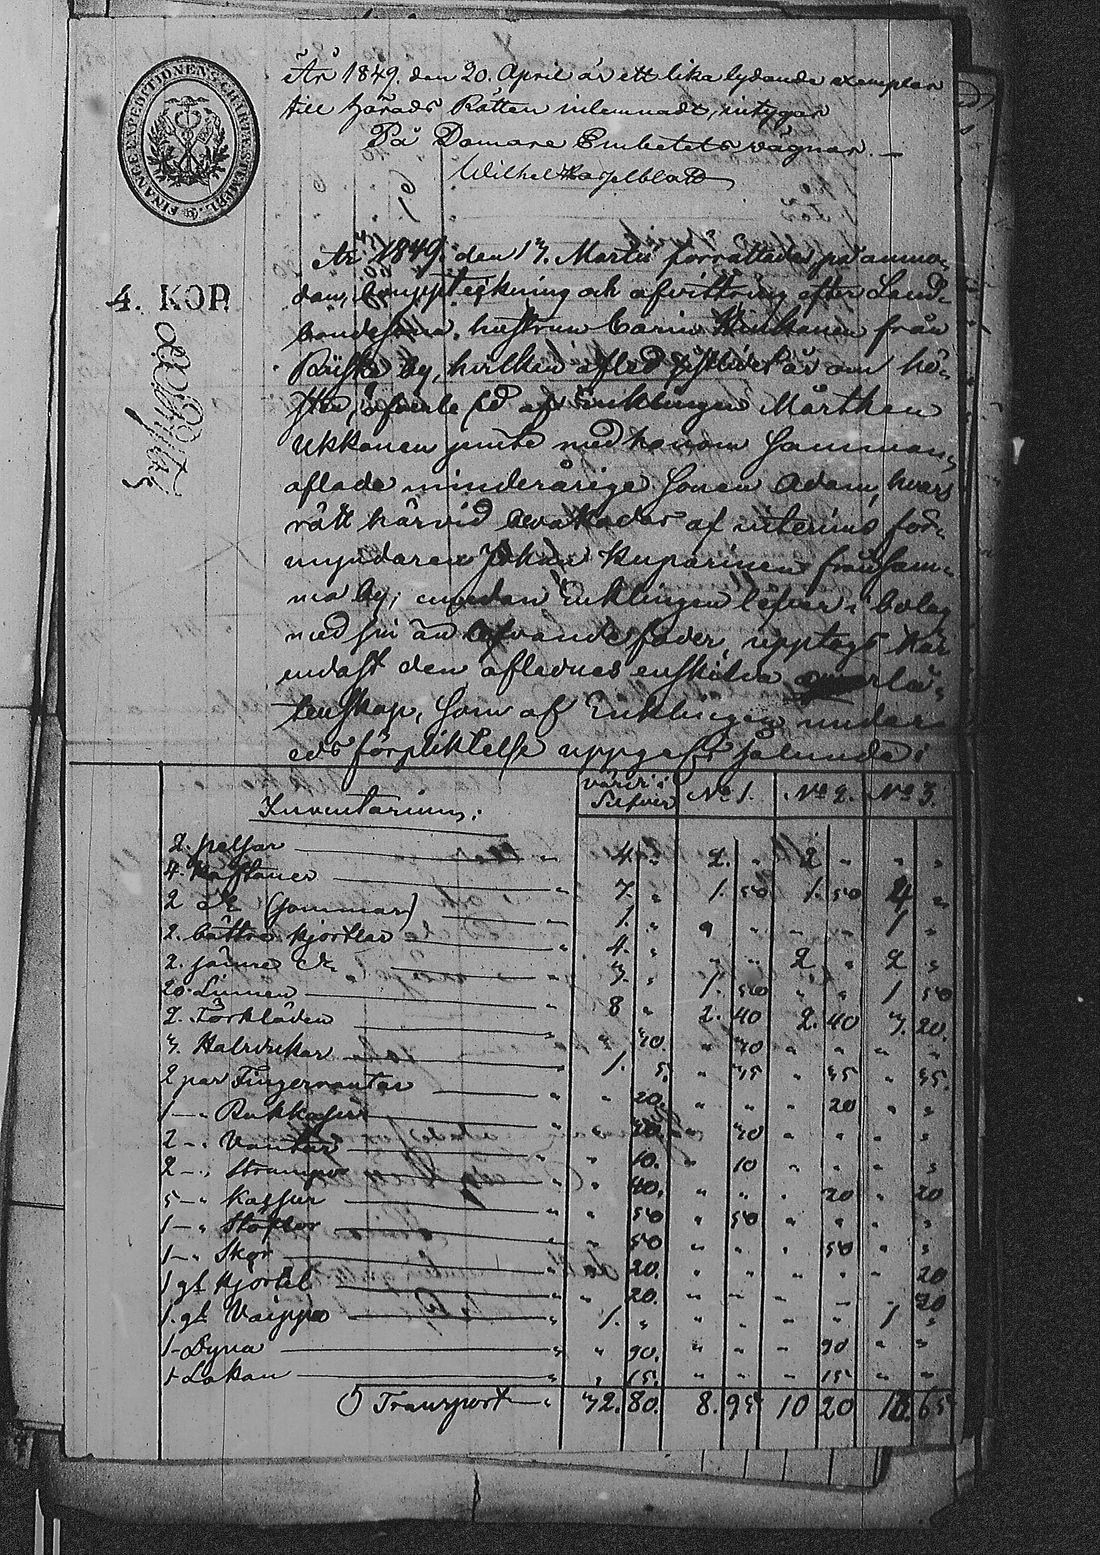 År 1849. den 20. April är ett lika lydande exemplar
till Härads Rätten inlemnadt, intygar
På Domare Embetets vägnar. —
Wilhel Hagelblatt
FINANCE EXPEDITIONENS CHARTÆ STEMPEL.
4. KOP.
År 1849. den 17. Martii förrättades på anmo-
dan, bouppteckning och afvittring efter Land-
bondesonen hustrun Carin Minkanen från
by, hvilken afled sistlidet år om hö-
sten, efterle d af Enklingen Mårthen
Ukkonen jemte med honom samman-
aflade minderårige Sonen Adam, hvars
rätt härvid bevakades af interims för-
myndaren Johan Kuparinen från sam-
ma by; emedan Enklingen lefver i bolag
med sin än lefvande fader, upptogs här
endast den aflednas enskilda qvarlå-
tenskap, som af Enklingen under
eds förpliktelse uppgafs sålunda:
Inventarium: värde i Silfver No 1. No 2. No 3.
2. pelsar — " 4. " 2. " 2 " " "
4. Kaftaner — " 7. " 1. 50 1. 50 4 "
2 do (sommar) — " 1. " " " " " 1 "
2. bättre kjortlar — " 4. " " " 2 " 2 "
2. sämre do — " 3. " 1. 50 " " 1 50
20 Linnen — " 8 " 2. 40 2. 40 3. 20.
2. Förkläden — " " 30. " 30 " " " "
3. Halsdukar — " 1. 5. " 35 " 35 " 35.
2 par Fingervantar — " " 20. " " " 20 " "
1 — " — " " 30. " 30 " " " "
2 — " Vantar — " " 10. " 10 " " " "
2 — " Strumpor — " " 40. " " " 20 " 20
5 — " — " " 50 " 50 " " " "
1 — " Stöflor — " " 50 " " " 50 " "
1 — " Skor — " " 20. " " " " " 20
1 gl Kjortel — " " 20. " " " " " 20
1. gl. Vaippa — " 1. " " " " " 1 "
1 - Dyna — " " 90. " " " 90 " "
1 Lakan — " " 15. " " " 15 " "
Transport — " 32. 80. 8. 95 10 20 13. 65